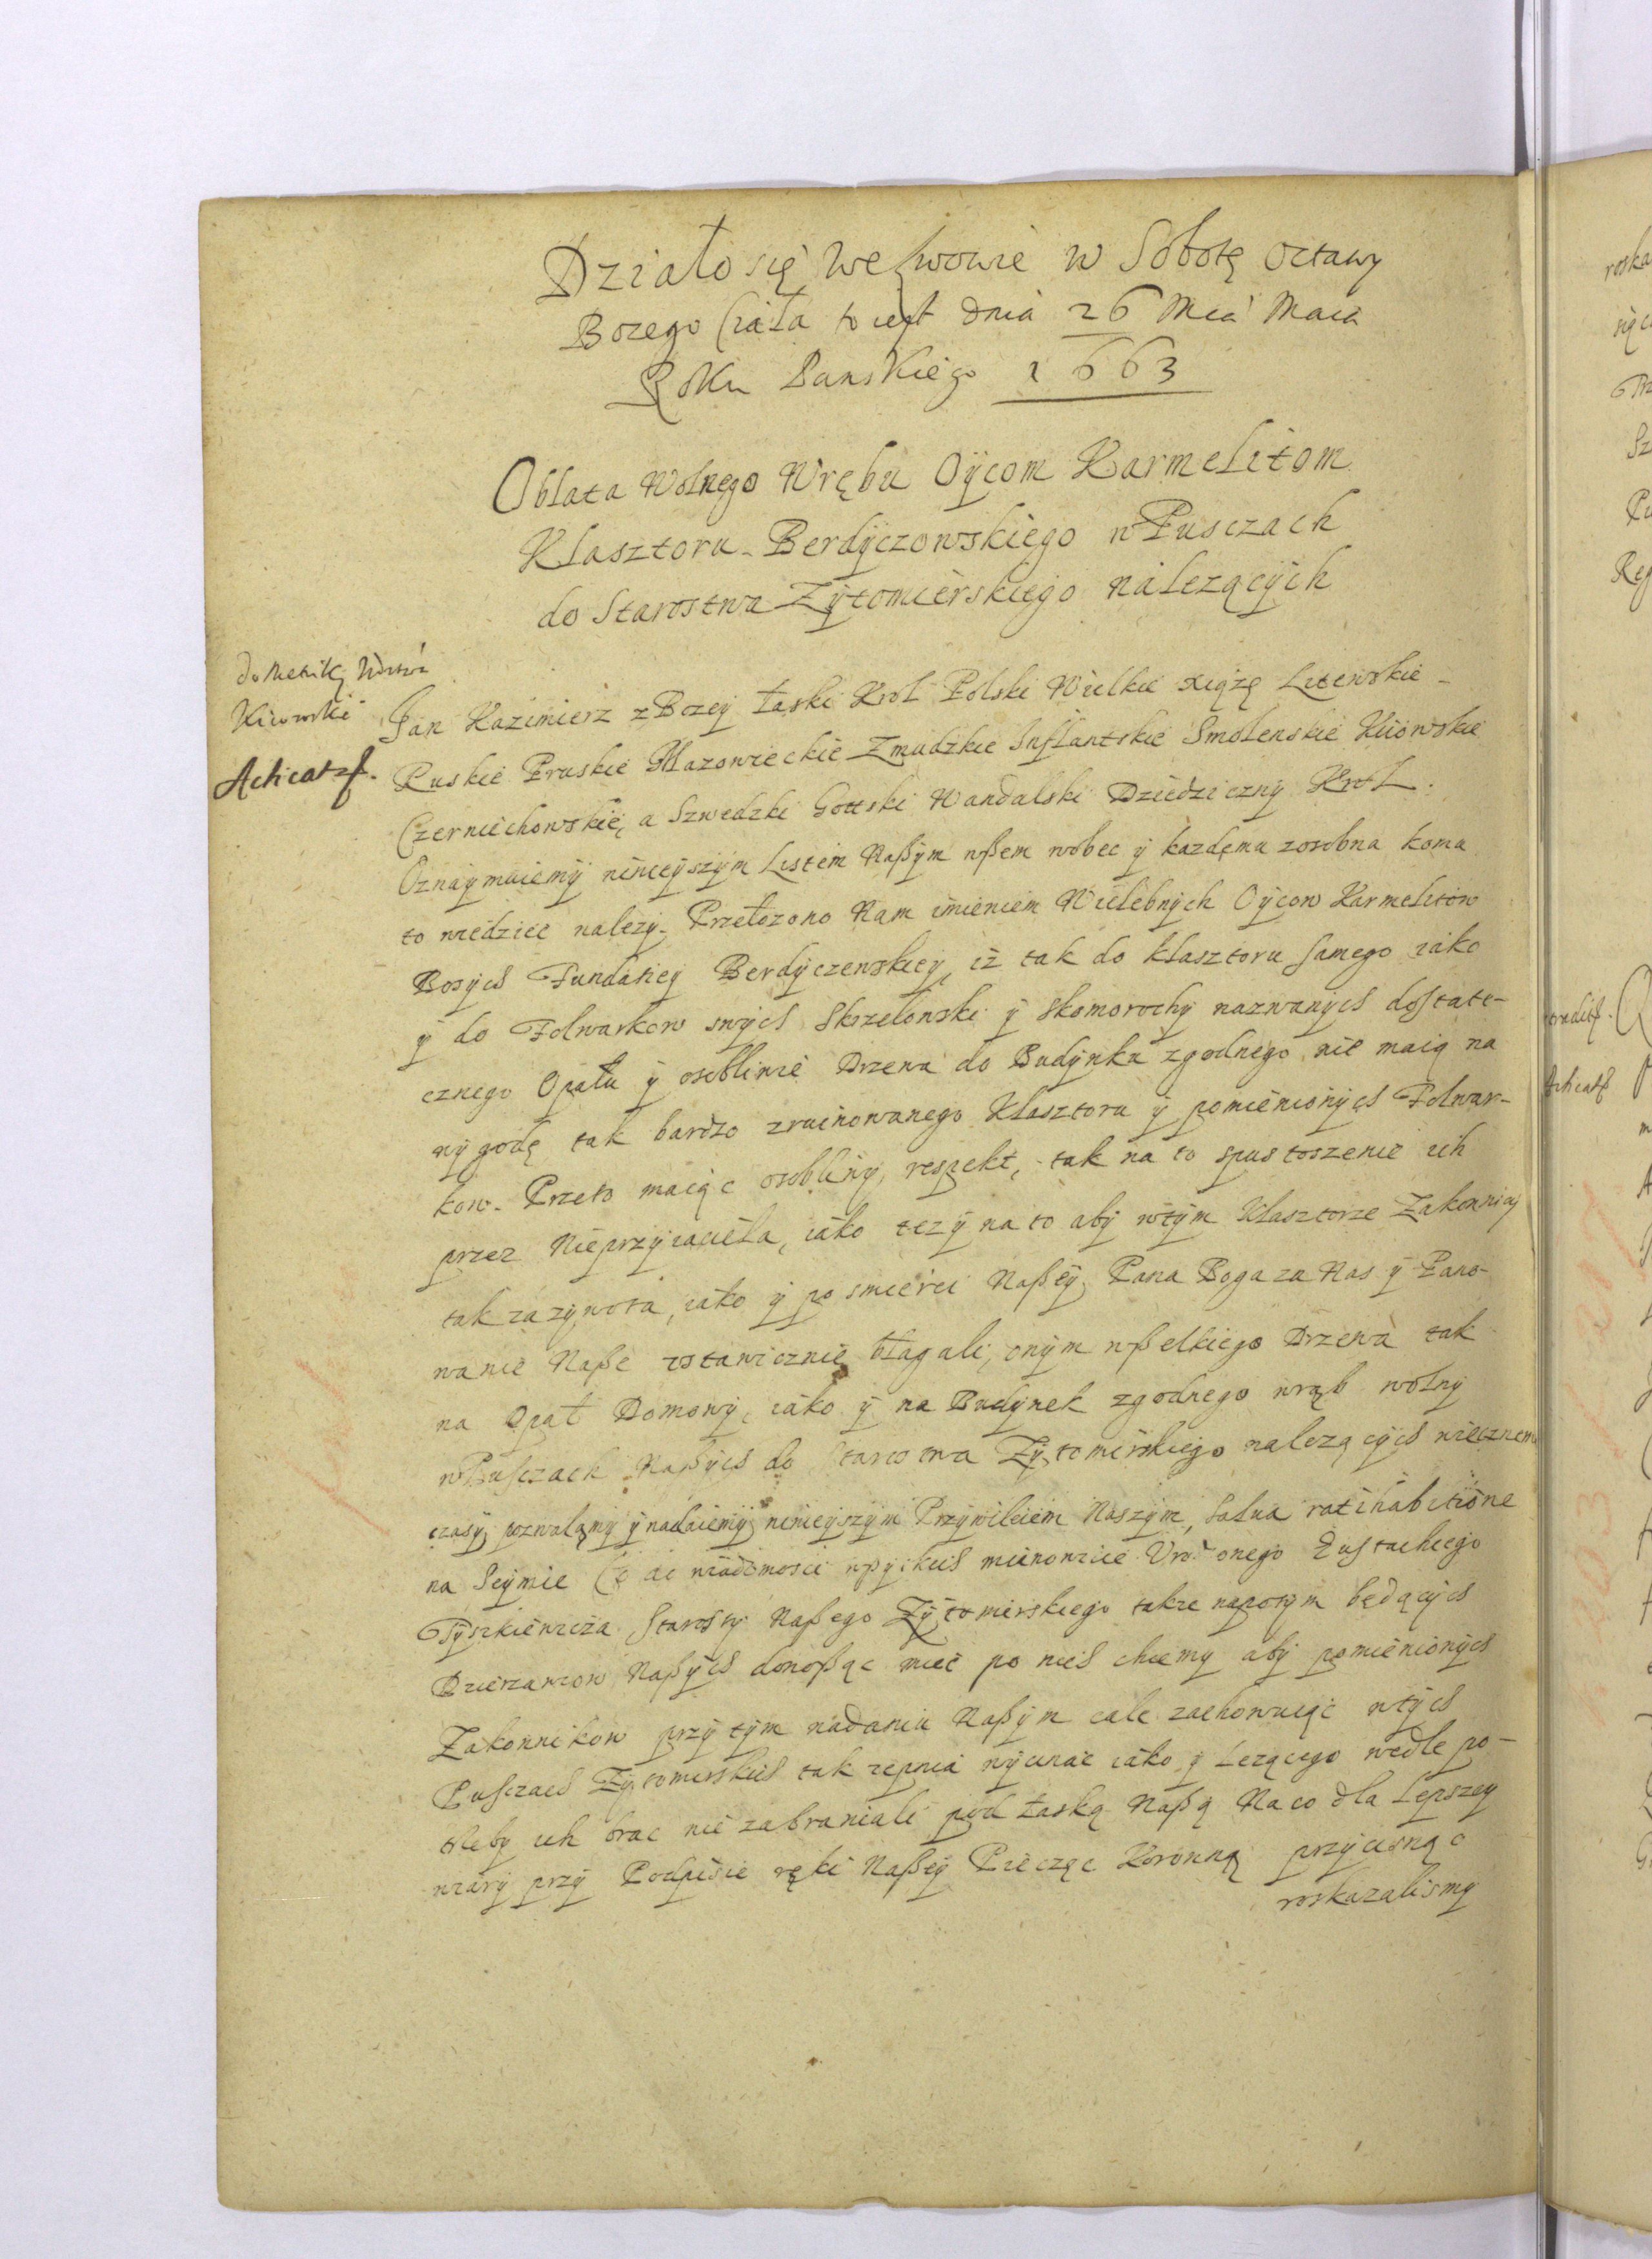 Działo się we Lwowie w Sobotę Octawy
Bozego Ciała to iest dnia 26 Mca Maia
Roku Panskiego 1663
Oblata Wolnego Wrębu Oÿcom Karmelitom
Klasztoru Berdÿczowskiego w Pusczach
do Starostwa Zÿtomierskiego nalezącÿch
do Metriki
Kiiowskiei
Jan Kazimierz z Bozey łaski Krol Polski Wielkie xiążę Litewskie
Ruskie Pruskie Mazowieckie Zmudzkie Inflantskie Smolenskie Kiiowskie
Czerniechowskie, a Szwedzki Gottski Wandalski Dziedzicznÿ Krol.
Oznaÿmuiemÿ ninieÿszÿm Listem Naßÿm wßem wobec ÿ kazdemu zosobna komu
to wiedziec nalezÿ. Przełozono Nam imieniem Wielebnÿch Oÿcow Karmelitow
Bosÿch Fundatiey Berdÿczewskieÿ, iż tak do klasztoru samego iako
ÿ do Folwarkow swÿch Skrzelowski ÿ Skomorochÿ nazwanÿch dostate-
cznego Opału ÿ osobliwie Drzewa do Budÿnku zgodnego nie maią na
wÿgodę tak bardzo zruinowanego Klasztoru ÿ pomienionÿch Folwar-
kow. Przeto maiąc osobliwÿ respekt, tak na to spustoszenie ich
przez Nieprzÿiaciela, iako tez ÿ na to abÿ w tÿm Klasztorze Zakonnicÿ
tak za zÿwota, iako ÿ po smierci Naßeÿ Pana Boga za Nas ÿ Pano-
wanie Naße ustawicznie błagali, onÿm wßelkiego Drzewa tak
na Opał Domowÿ, iako ÿ na Budÿnek zgodnego wrąb wolnÿ
w Pusczach Naßÿch do Starostwa Zÿtomirskiego nalezącÿch wiecznemi
czasÿ pozwalamÿ ÿ nadaiemÿ ninieÿszÿm Przÿwileiem Naszÿm, Salua ratihabitione
na Seÿmie Co do wiadomosci wßÿtkich mianowicie Urodzonego Eustachiego
Tÿszkiewicza Starostÿ Naßego Zÿtomirskiego takze napotÿm będącÿch
Dzierzawcow Naßÿch donoßąc miec po nich chcemÿ abÿ pomienionÿch
Zakonnikow przÿ tÿm nadaniu Naßÿm cale zachowuiąc w tÿch
Pusczach Zÿtomirskich tak zepnia wÿcinac iako ÿ Lezącego wedle po-
trzebÿ ich brac nie zabraniali pod łaską Naßą Na co dla Lepszeÿ
wiarÿ przÿ Podpisie ręki Naßeÿ Pieczęc Koronną przÿcisnąc
roskazalismÿ